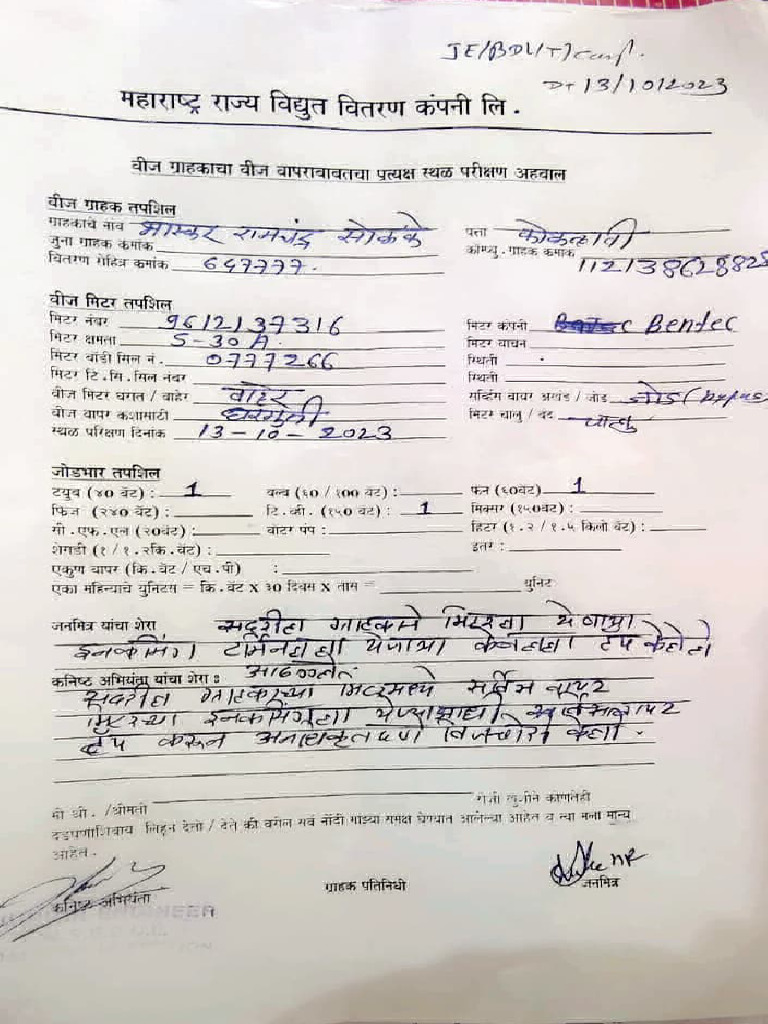 JE/BDU/T/
Dt 13/10/2023
महाराष्ट्र राज्य विद्युत वितरण कंपनी लि.
वीज ग्राहकाचा वीज वापराबाबतचा प्रत्यक्ष स्थळ परीक्षण अहवाल
वीज ग्राहक तपशिल
ग्राहकाचे नाव भास्कर रामचंद्र सोळंके पत्ता
जुना ग्राहक कमांक कॉम्प्यु. ग्राहक कमांक
वितरण रोहित्र कमांक 647777.
वीज मिटर तपशिल
मिटर नंबर 9612137316 मिटर कंपनी Bentec
मिटर क्षमता 5-30 A. मिटर वाचन
मिटर बॉडी सिल नं. 0777266 स्थिती
मिटर टि.सि.सिल नंबर स्थिती
वीज मिटर घरात / बाहेर बाहेर सर्व्हिस वायर अखंड / जोड जोड
वीज वापर कशासाठी घरगुती मिटर चालु / बंद चालु
स्थळ परिक्षण दिनांक 13-10-2023
जोडभार तपशिल
टयुब (४० वॅट) : 1 बल्ब (६० / १०० वॅट) : फॅन (६०वॅट) 1
फ्रिज (२४० वॅट) : टि. व्ही. (१५० वॅट) : 1 मिक्सर (१५०वॅट) :
सी.एफ.एल (२०वॅट) : वॉटर पंप : हिटर (१.२ / १.५ किलो वॅट) :
शेगडी (१ / १.२कि.वॅट) : इतर :
एकुण वापर (कि.वॅट / एच.पी) :
एका महिन्याचे युनिटस = कि.वॅट X ३० दिवस X तास = युनिट
जनमित्र यांचा शेरा सदरील ग्राहकाने मिटरला येणाऱ्या
इनकमिंग टर्मिनलला येणाऱ्या केबलला टॅप केलेले
आढळले
कनिष्ठ अभियंता यांचा शेरा :
सदरील ग्राहकाच्या मिटरमध्ये सर्विस वायर
मिटरच्या इनकमिंगला
टॅप करून अनाधिकृतपणे विजचोरी केली.
मी श्री. /श्रीमती राजी खुशीने कोणतेही
दडपणाशिवाय लिहुन देतो / देते की वरील सर्व नोंदी माझ्या समक्ष घेण्यात आलेल्या आहेत व त्या मला मान्य
आहेत.
कनिष्ठ अभियंता ग्राहक प्रतिनिधी जनमित्र